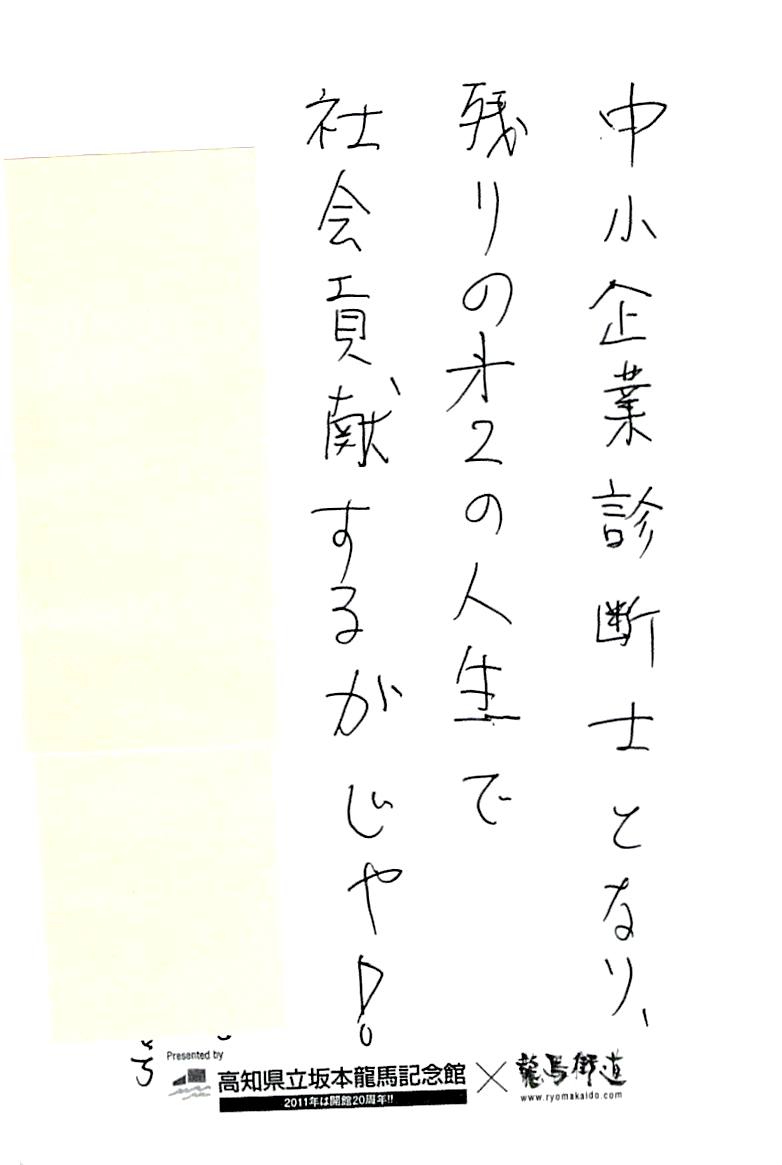 中小企業診断士となり、
残りの才2の人生で
社会貢献するがじゃ!
Presented by
高知県立坂本龍馬記念館
2011年は開館20周年!!
×
龍馬街道
www.ryomakaido.com